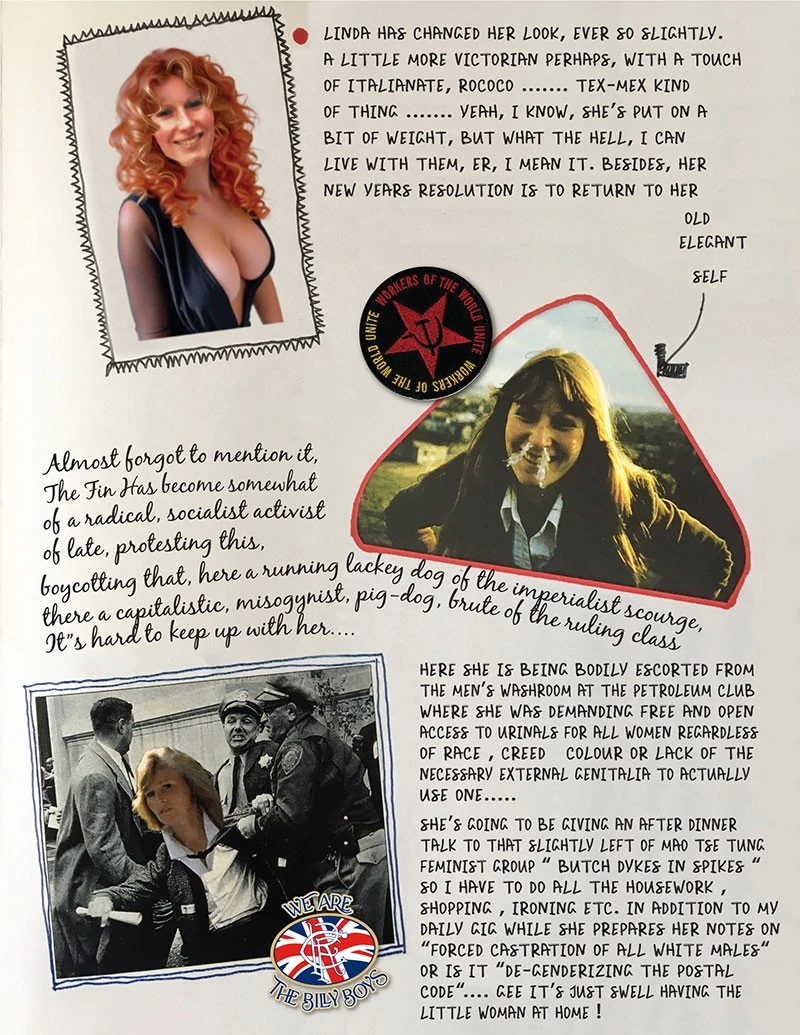 LINDA HAS CHANGED HER LOOK, EVER SO SLIGHTLY.
A LITTLE MORE VICTORIAN PERHAPS, WITH A TOUCH
OF ITALIANATE, ROCOCO ....... TEX-MEX KIND
OF THING ....... YEAH, I KNOW, SHE'S PUT ON A
BIT OF WEIGHT, BUT WHAT THE HELL, I CAN
LIVE WITH THEM, ER, I MEAN IT. BESIDES, HER
NEW YEARS RESOLUTION IS TO RETURN TO HER
OLD
ELEGANT
SELF
WORKERS OF THE WORLD UNITE WORKERS OF THE WORLD UNITE
Almost forgot to mention it,
The Fin Has become somewhat
of a radical, socialist activist
of late, protesting this,
boycotting that, here a running lackey dog of the imperialist scourge,
there a capitalistic, misogynist, pig-dog, brute of the ruling class
It"s hard to keep up with her....
HERE SHE IS BEING BODILY ESCORTED FROM
THE MEN'S WASHROOM AT THE PETROLEUM CLUB
WHERE SHE WAS DEMANDING FREE AND OPEN
ACCESS TO URINALS FOR ALL WOMEN REGARDLESS
OF RACE , CREED COLOUR OR LACK OF THE
NECESSARY EXTERNAL GENITALIA TO ACTUALLY
USE ONE.....
SHE'S GOING TO BE GIVING AN AFTER DINNER
TALK TO THAT SLIGHTLY LEFT OF MAO TSE TUNG
FEMINIST GROUP " BUTCH DYKES IN SPIKES "
SO I HAVE TO DO ALL THE HOUSEWORK ,
SHOPPING , IRONING ETC. IN ADDITION TO MY
DAILY GIG WHILE SHE PREPARES HER NOTES ON
"FORCED CASTRATION OF ALL WHITE MALES"
OR IS IT "DE-GENDERIZING THE POSTAL
CODE".... GEE IT'S JUST SWELL HAVING THE
LITTLE WOMAN AT HOME !
WE ARE
THE BILLY BOYS